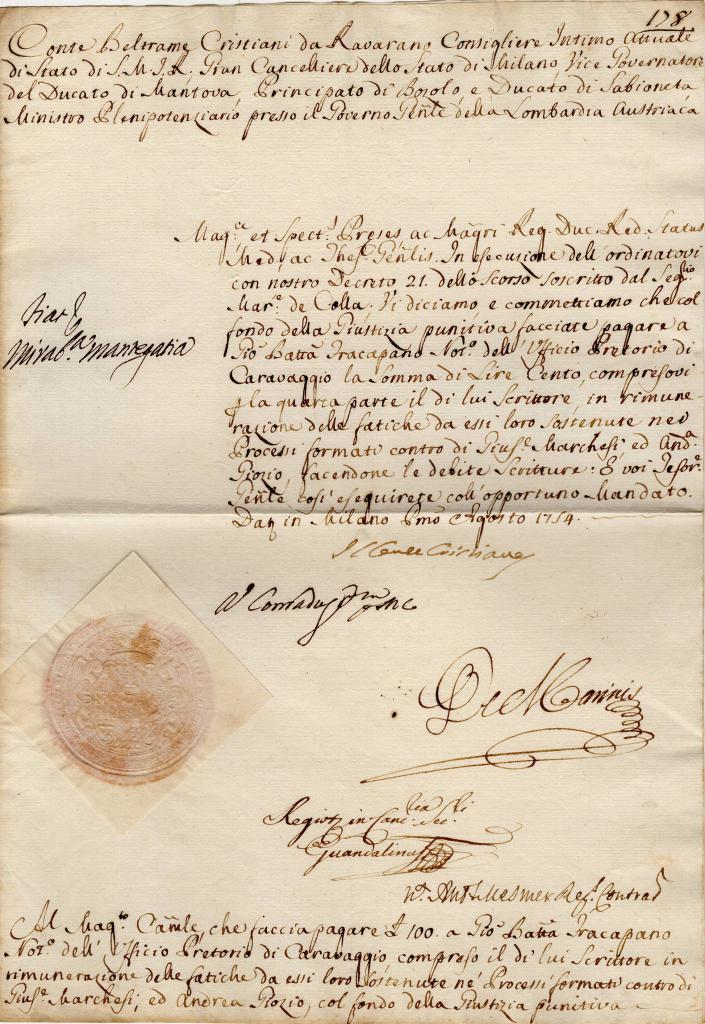 178
Conte Beltrame Cristiani da Ravarano Consigliere Intimo Attuale
di Stato di S. M. I. R. Gran Cancelliere dello Stato di Milano, Vice Governatore
del Ducato di Mantova, Principato di Bozolo e Ducato di Sabioneta
Ministro Plenipotenziario presso il Governo Gen̄le della Lombardia Austriaca
Mag.ci et Spect.s Preses ac Mag̃ri Reg. Duc. Red. Status
Med. ac Thes.s Gen̄lis. In esecuzione dell'ordinatovi
con nostro Decreto 21. dello scorso soscritto dal Seg.rio
Mar.e de Colla, Vi diciamo e commettiamo che col
fondo della Giustizia punitiva facciate pagare a
Gio: Batt̃a Tracapano Not.o dell'Ufficio Pretorio di
Caravaggio la somma di Lire Cento, compresovi
la quarta parte il di lui Scrittore, in rimune-
razione delle fatiche da essi loro sostenute nei
Processi formati contro di Gius.e Marchesi, ed And.a
Giozio, facendone le debite Scritture: E voi Tesor.e
Gen̄le così eseguirete coll'opportuno Mandato.
Dat in Milano Pmo Agosto 1754.
Fiat
Il Conte Cristiani
V. Corradus
De Marinis
Registr. in Canc.ria Sec.ri
Guandalinus
Al Mag.to Cam̄le, che faccia pagare £ 100. a Gio: Batt̃a Tracapano
Not.o dell'Ufficio Pretorio di Caravaggio compreso il di lui Scrittore in
rimunerazione delle fatiche da essi loro sostenute ne' Processi formati contro di
Gius.e Marchesi, ed Andrea Giozio, col fondo della Giustizia punitiva